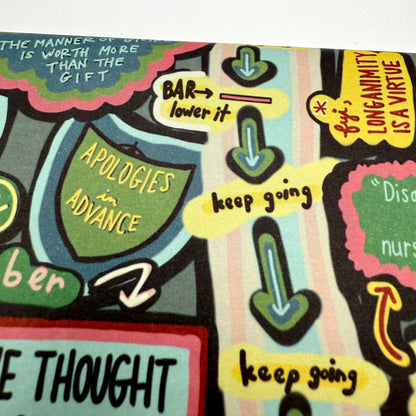 THE MANNER OF GIVING
IS WORTH MORE
THAN THE
GIFT
BAR→
lower it
* fyi,
LONGANIMITY
IS A VIRTUE
APOLOGIES
in
ADVANCE
keep going
"Disc
nurs
ber
E THOUGHT
keep going